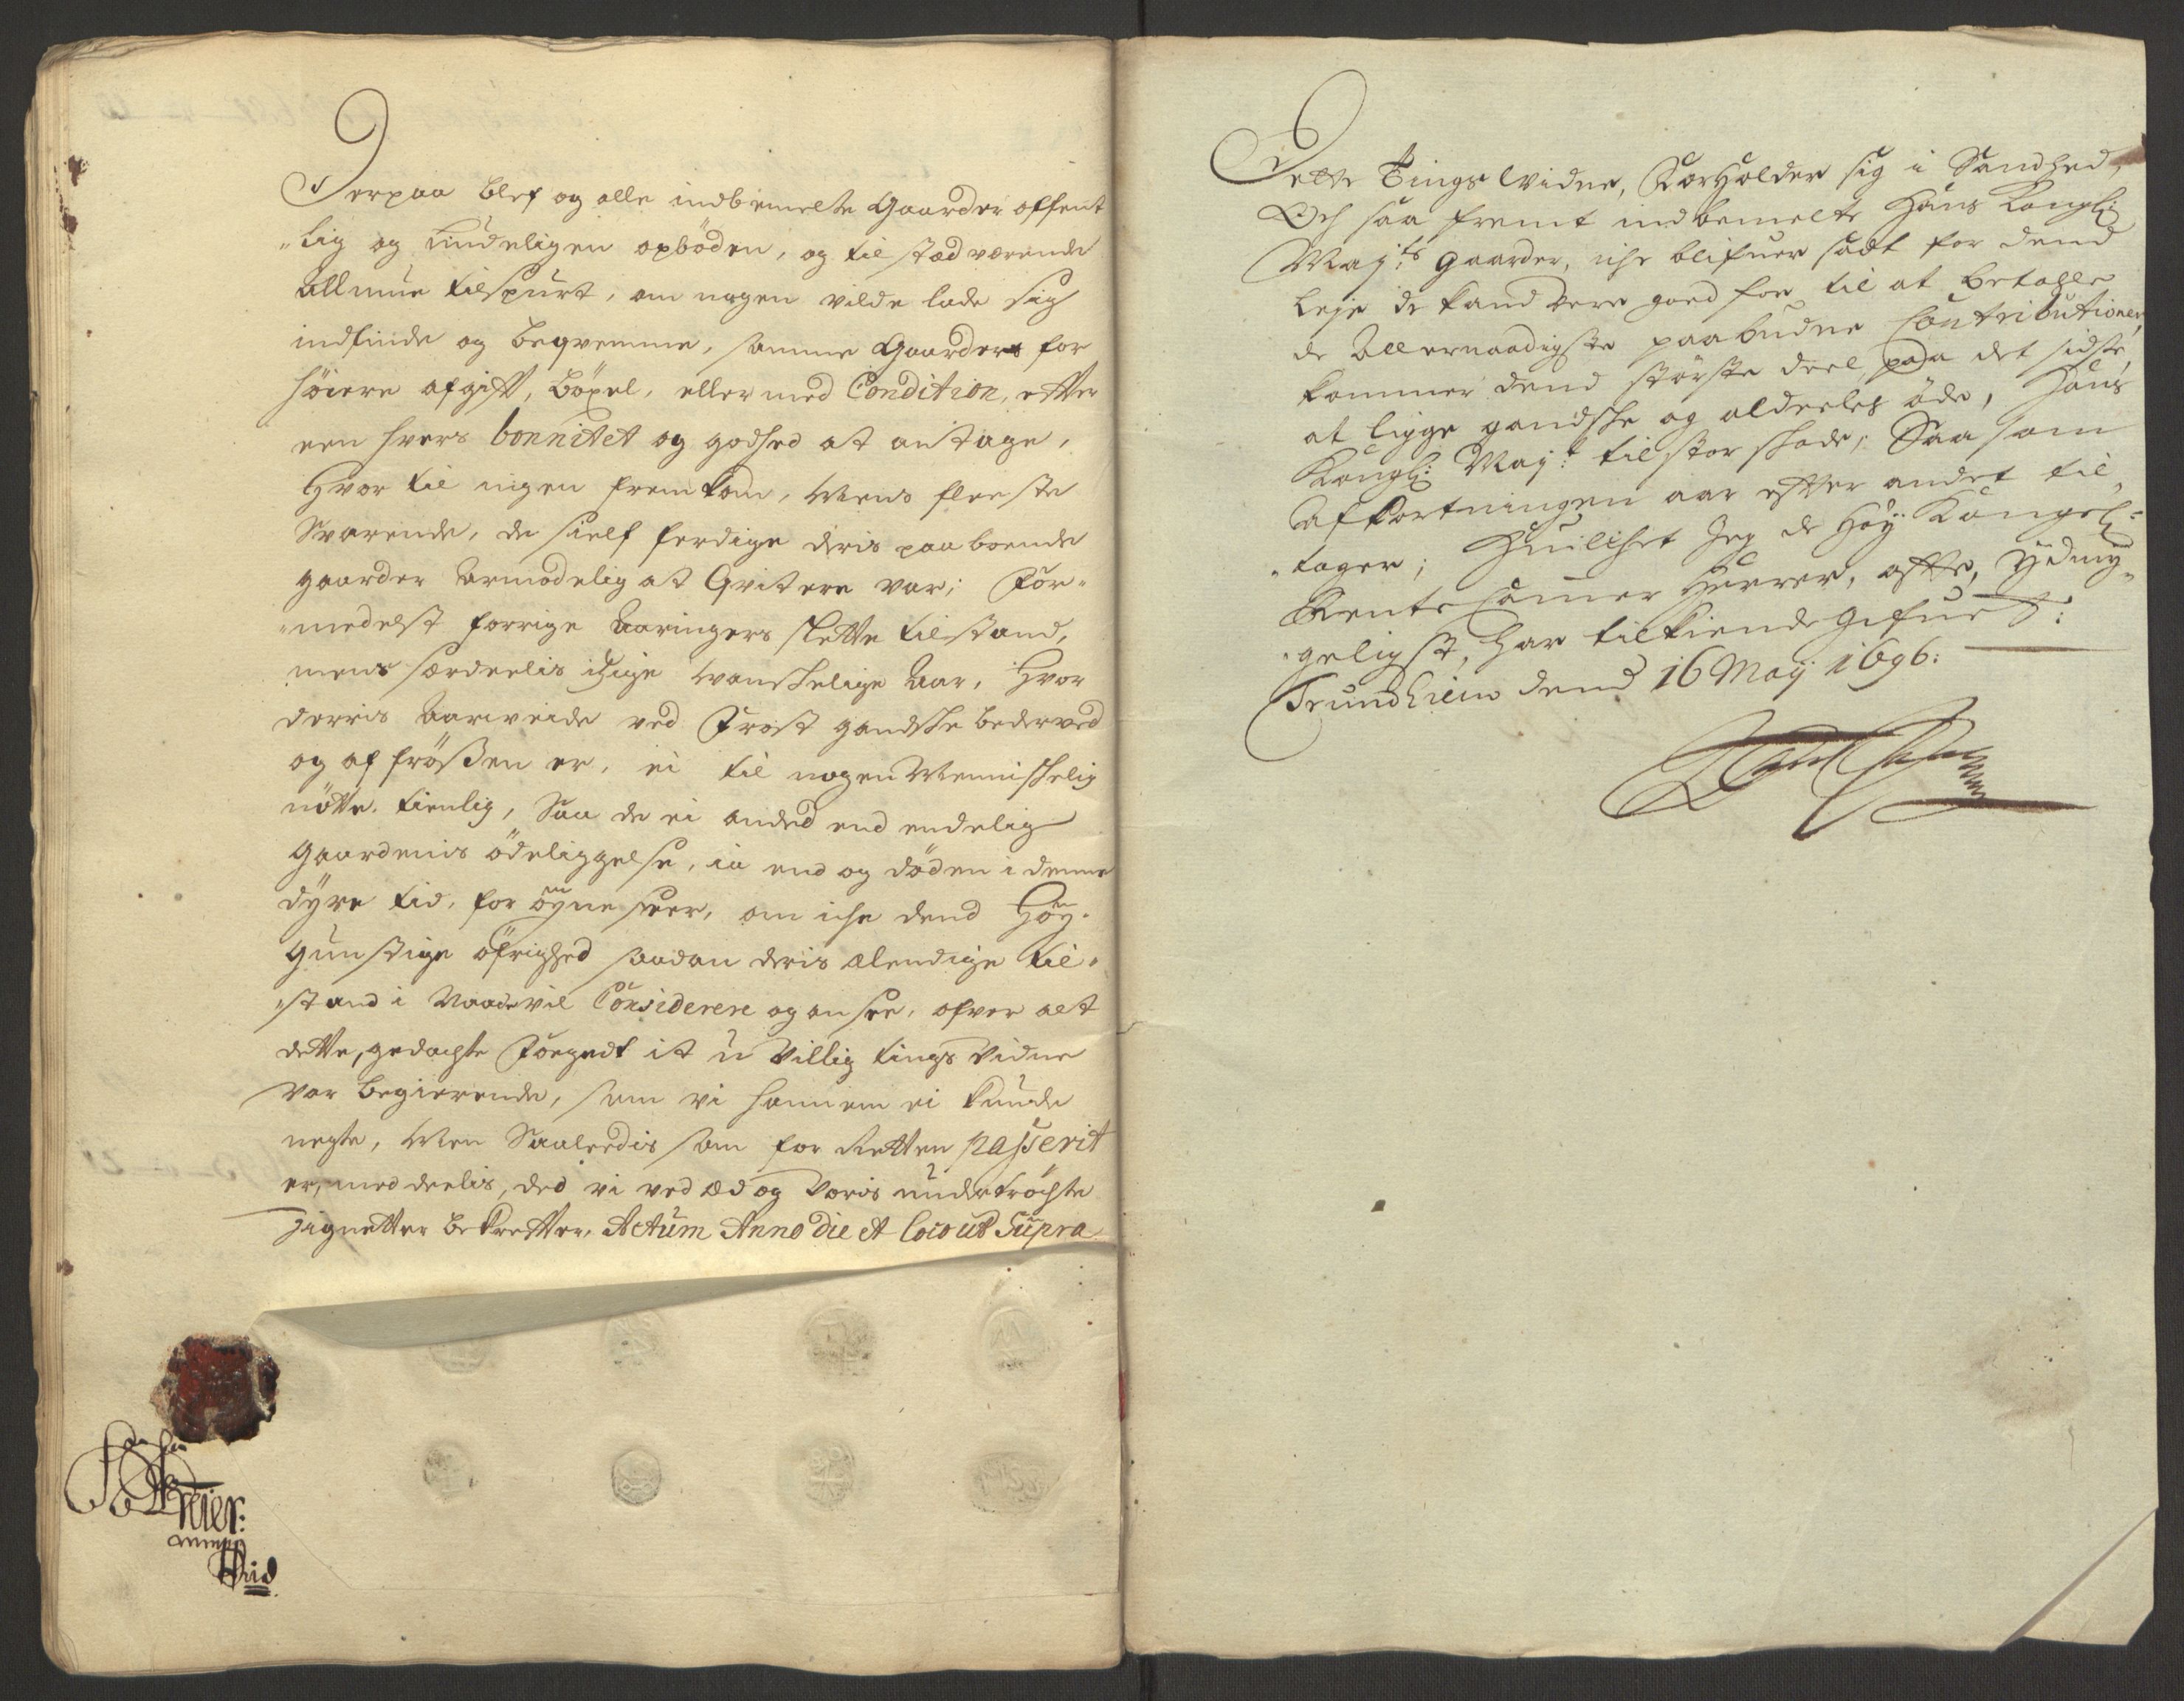 Derpaa blef og alle indbemelte Gaarder offent
"lig og lydeligen opböden, og til stædværende
Allmue tilspurt, om nogen vilde lade sig
indfinde og beqvemme, samme Gaarder for
höiere afgift, böxel, eller med Condition, efter
een hvers bonnitet og godhed at antage,
Hvor til ingen fremkom, Mens fleeste
Svarende, de sielf ferdige deris paaboende
gaarder Armodelig at Qvitere var; For-
"medelst forrige Aaringers slette tilstand,
mens særdeelis izige vanskelige Aar, Hvor
derris Aarveide ved Frost gandske bederved
og affrößen er, ei til nogen Menniskelig
nötte tienlig, Saa de ei anded end endelig
gaardenis ödeliggelse, ia end og döden i denne
dyre tid, for öyne seer, om iche dend Höy-
gunstige öfrighed saadan deris elendige til-
"stand i Naade vil Considerere og ansee, ofver alt
dette, gedachte Foegedt it u-villig tings vidne
var begierende, som vi hannem ei kunde
negte, Men Saaleedis som for Retten passerit
er, meddeelis, ded vi ved æd og voris undertröchte
Zignetter bekrefter, Actum Anno die et loco ut Supra
mmpp
Dette Tings Vidne, Forholder sig i Sandhed,
Och saa fremt indbemelte Hans Kongl:
May:ts Gaarder, iche blifuer sadt for dend
Leje de kand vere goed for til at betahle
de Allernaadigste paabudne Contributioner,
kommer dend störste deel paa det sidste
at ligge gandske og alldeelis öde, Hans
Kongl: May:t til stor skade, Saa som
Afkortningen aar effter andet til-
"tager; Huilchet Jeg de Höy Kongel:
Rente Cammer Herrer, offte, ÿdmy-
"geligst, har tilkiende gifuet:
Trundhiem dend 16 Maÿ 1696: